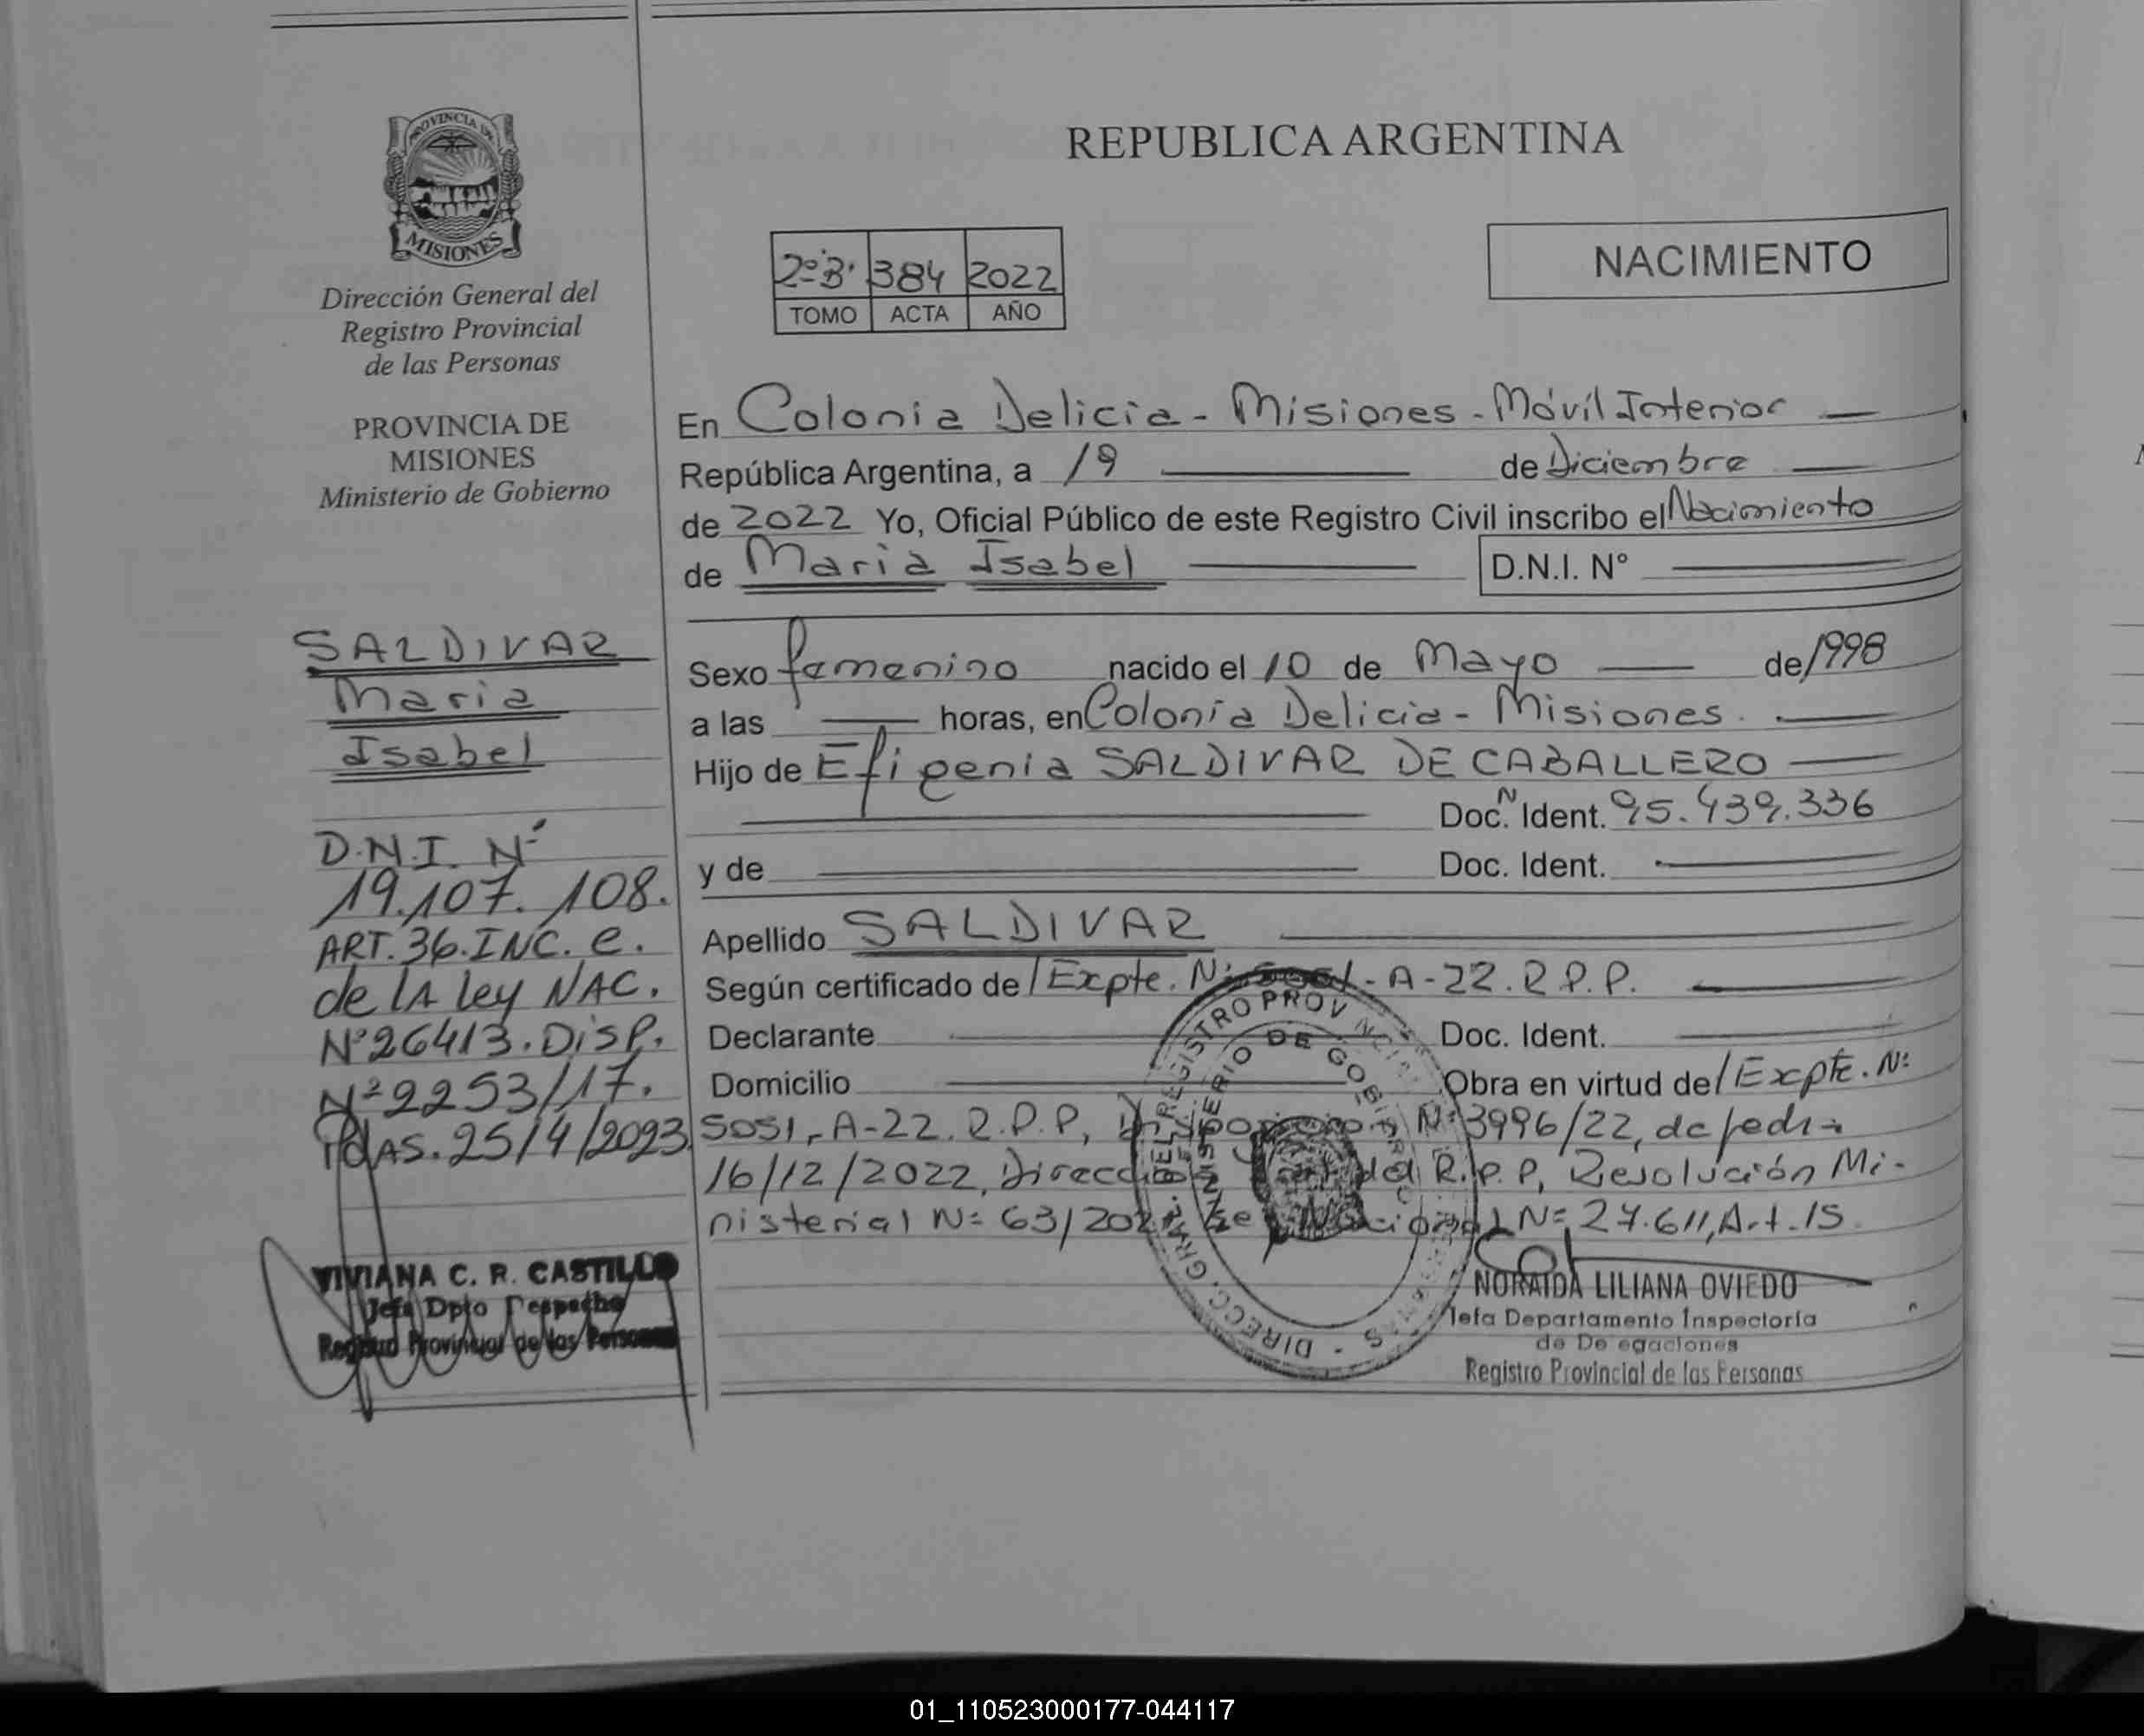 PROVINCIA DE
MISIONES
Dirección General del
Registro Provincial
de las Personas
PROVINCIA DE
MISIONES
Ministerio de Gobierno
SALDIVAR
Maria
Isabel
D.N.I. Nº
19.107.108.
ART.36.INC.e.
de lA ley NAC.
Nº26413.DiSP.
Nº2253/17.
PdAS.25/4/2023
VIVIANA C. R. CASTILLO
Jefa Dpto Despacho
Registro Provincial de las Personas
REPUBLICA ARGENTINA
2º"B" 384 2022
TOMO ACTA AÑO
NACIMIENTO
En Colonia Delicia - Misiones - Móvil Interior
República Argentina, a 19 de Diciembre
de 2022 Yo, Oficial Público de este Registro Civil inscribo el Nacimiento
de Maria Isabel D.N.I. Nº
Sexo femenino nacido el 10 de Mayo de 1998
a las horas, en Colonia Delicia - Misiones.
Hijo de Efigenia SALDIVAR DE CABALLERO
Doc. Nº Ident. 95.439.336
y de Doc. Ident.
Apellido SALDIVAR
Según certificado de / Expte. Nº 5051-A-22.R.P.P.
Declarante Doc. Ident.
Domicilio Obra en virtud de / Expte. Nº
5051-A-22.R.P.P, Disposición Nº 3996/22, de fecha
16/12/2022, Dirección del R.P.P, Resolución Mi-
nisterial Nº 63/202 Ley Nacional Nº 27.611, Art. 15
DIRECC. GRAL. DEL REGISTRO PROVINCIAL
MINISTERIO DE GOBIERNO
NORAIDA LILIANA OVIEDO
Jefa Departamento Inspectoría
de Delegaciones
Registro Provincial de las Personas
01_110523000177-044117